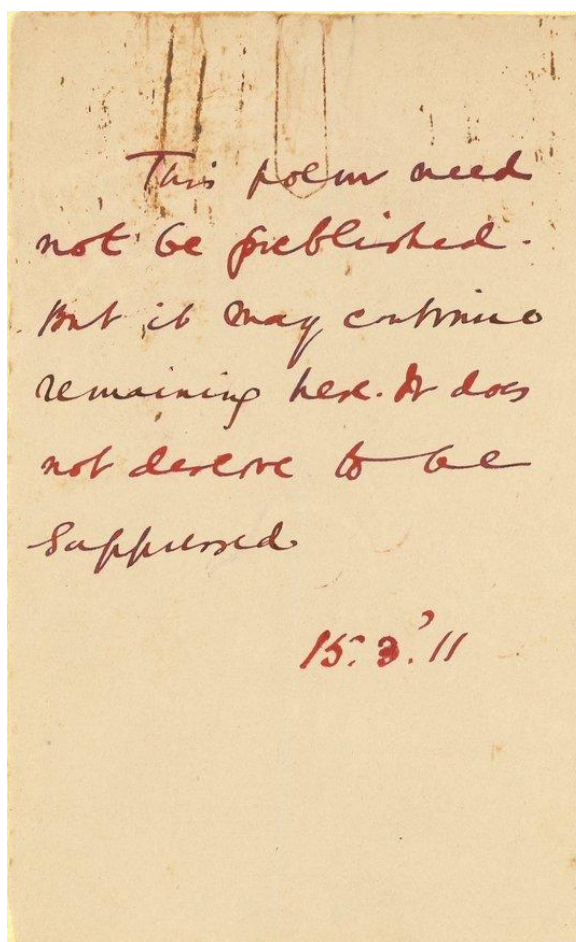 This poem need
not be published.
But it may continue
remaining here. It does
not deserve to be
suppressed
15.3.'11